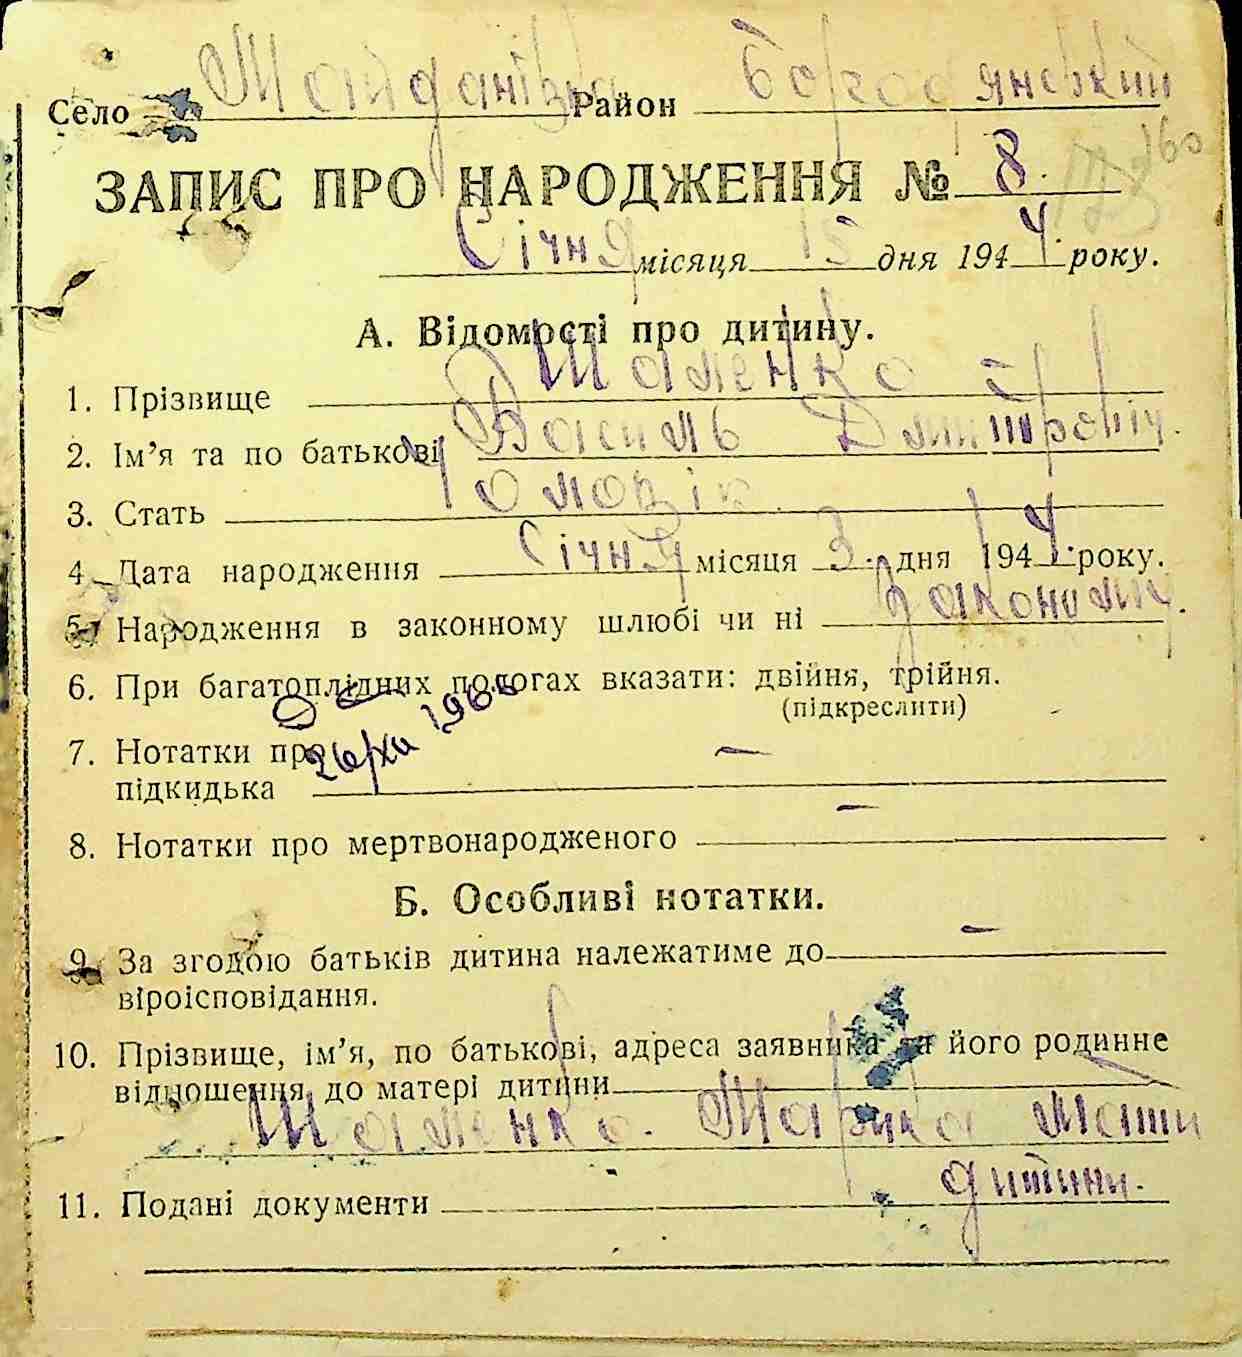 Село Майданівка Район Бородянський
ЗАПИС ПРО НАРОДЖЕННЯ № 8.
Січня місяця 15 дня 1944 року.
А. Відомості про дитину.
1. Прізвище Шаменко
2. Ім’я та по батькові Василь Дмитровіч.
3. Стать Чоловік.
4. Дата народження Січня місяця 3 дня 1944 року.
5. Народження в законному шлюбі чи ні законому.
6. При багатоплідних пологах вказати: двійня, трійня.
(підкреслити)
7. Нотатки про
підкидька —
8. Нотатки про мертвонародженого —
Б. Особливі нотатки.
9. За згодою батьків дитина належатиме до —
віроісповідання.
10. Прізвище, ім’я, по батькові, адреса заявника та його родинне
відношення до матері дитини
Шаменко. Марика Мати
дитини.
11. Подані документи